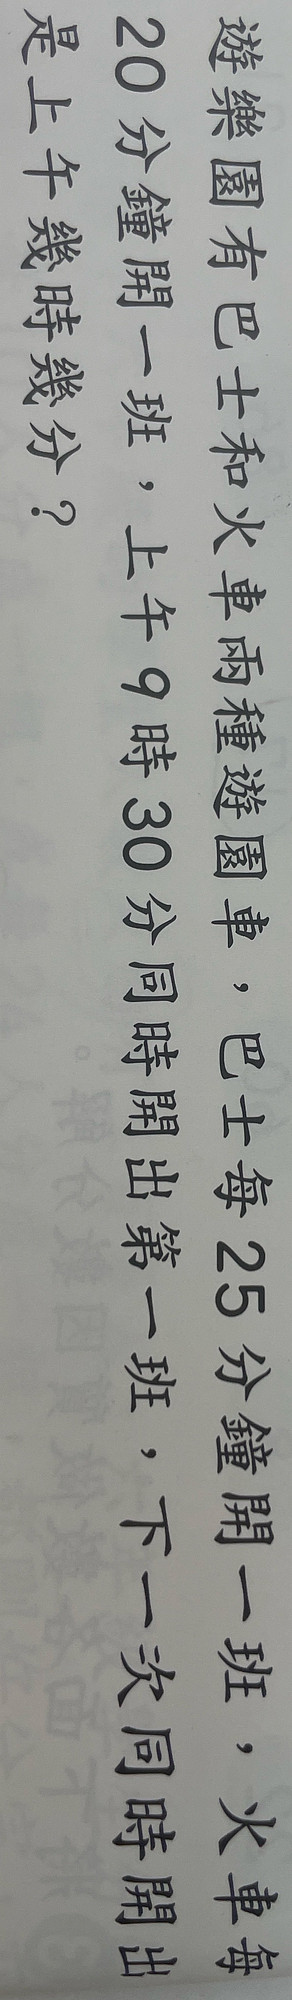 遊樂園有巴士和火車兩種遊園車，巴士每25分鐘開一班，火車每
20分鐘開一班，上午9時30分同時開出第一班，下一次同時開出
是上午幾時幾分？